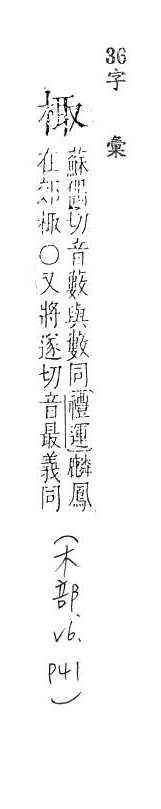 36字彙
棷
蘇偶切音藪與藪同禮運麟鳳
在郊棷○又將遂切音最義同
(木部. v6. P41)